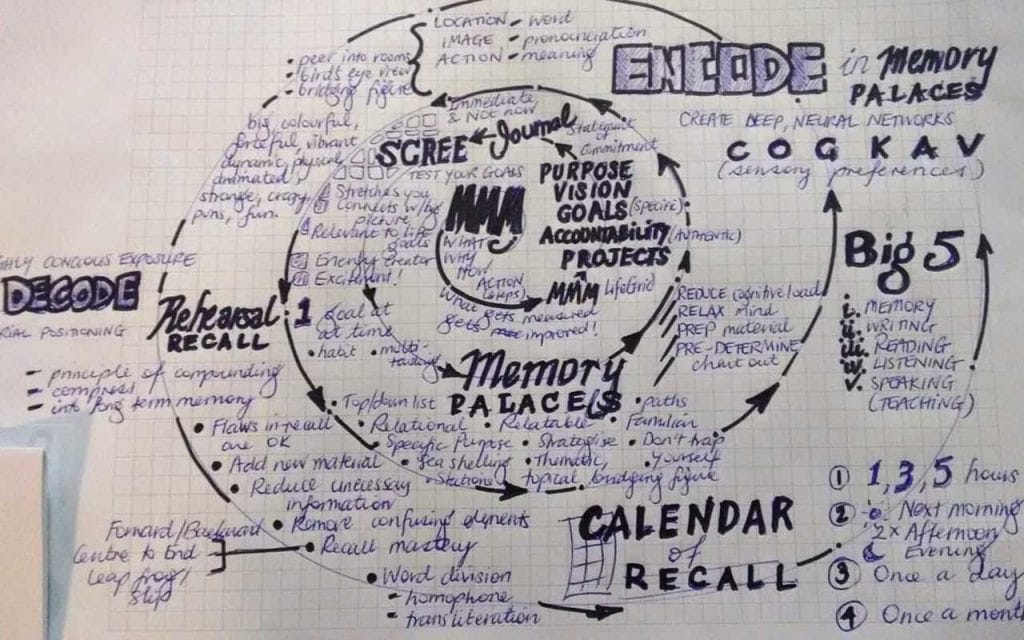 LOCATION - word
IMAGE - pronounciation
ACTION - meaning
• peer into rooms
• birds eye view
• bridging figure
ENCODE in Memory
PALACES
CREATE DEEP, NEURAL NETWORKS
C O G K A V
(sensory preferences)
big, colourful,
forceful, vibrant
dynamic, physical,
animated,
strange, crazy,
puns, fun.
Immediate
& Not now
Journal
Statement
Commitment
SCREE
TEST YOUR GOALS
Stretches you
Connects w/big
picture
Relevant to life
goals
Energy creator
Excitement!
PURPOSE
VISION
GOALS (SPECIFIC)
ACCOUNTABILITY (AUTHENTIC)
PROJECTS
MMM
WHAT
WHY
HOW
ACTION
(steps)
What gets measured
gets improved!
MMM LifeGrid
1 Goal at
at time
• habit • multi-
tasking
Big 5
i. MEMORY
ii. WRITING
iii. READING
iv. LISTENING
v. SPEAKING
(TEACHING)
REDUCE cognitive load
RELAX mind
PREP material
PRE-DETERMINE
chart out
HLY CONCIOUS EXPOSURE
DECODE
RIAL POSITIONING
Rehearsal
RECALL
- principle of compounding
- compress
- into long term memory
Memory
PALACE(S)
• Top/down list
• Relational
• Relatable
• paths
• Familiar
• Specific Purpose
• Strategise
• Don't trap
Yourself
• Sea shelling
• Thematic,
topical
• Stations
bridging figure
• Flaws in recall
are OK
• Add new material
• Reduce unecessay
information
• Remove confusing elements
• Recall mastery
Forward/Backward
Centre to End
Leap frog/
Skip
• Word division
- homophone
- transliteration
CALENDAR
of
RECALL
① 1, 3, 5 hours
② Next morning
2x Afternoon
Evening
③ Once a day
④ Once a mont